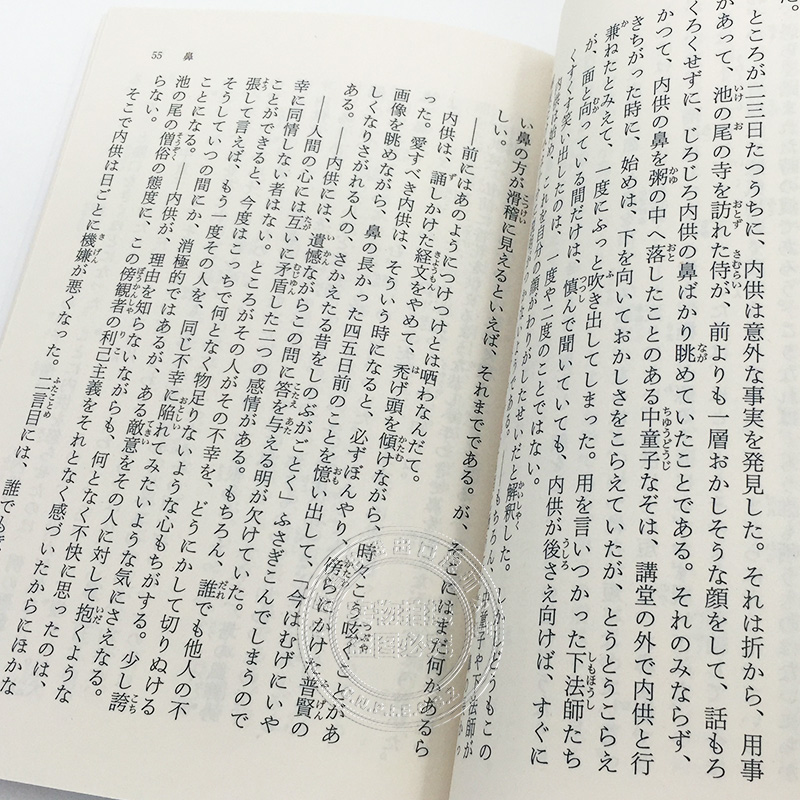 た。
ところが二三日たつうちに、内供は意外な事実を発見した。それは折から、用事
があって、池の尾の寺を訪れた侍が、前よりも一層おかしそうな顔をして、話もろ
くろくせずに、じろじろ内供の鼻ばかり眺めていたことである。それのみならず、
かつて、内供の鼻を粥の中へ落したことのある中童子なぞは、講堂の外で内供と行
きちがった時に、始めは、下を向いておかしさをこらえていたが、とうとうこらえ
兼ねたとみえて、一度にふっと吹き出してしまった。用を言いつかった下法師たち
が、面と向っている間だけは、慎んで聞いていても、内供が後さえ向けば、すぐに
くすくす笑い出したのは、一度や二度のことではない。
内供は始め、これを自分の顔がわりがしたせいだと解釈した。しかしどうもこの
である。――もちろん、中童子や下法師が
い鼻の方が滑稽に見えるといえば、それまでである。が、そこにはまだ何かあるら
しい。
――前にはあのようにつけつけとは哂わなんだて。
内供は、誦しかけた経文をやめて、禿げ頭を傾けながら、時々こう呟くことがあ
った。愛すべき内供は、そういう時になると、必ずぼんやり、傍らにかけた普賢の
画像を眺めながら、鼻の長かった四五日前のことを憶い出して、「今はむげにいや
しくなりさがれる人の、さかえたる昔をしのぶがごとく」ふさぎこんでしまうので
ある。――内供には、遺憾ながらこの問に答を与える明が欠けていた。
――人間の心には互いに矛盾した二つの感情がある。もちろん、誰でも他人の不
幸に同情しない者はない。ところがその人がその不幸を、どうにかして切りぬける
ことができると、今度はこっちで何となく物足りないような心もちがする。少し誇
張して言えば、もう一度その人を、同じ不幸に陥れてみたいような気にさえなる。
そうしていつの間にか、消極的ではあるが、ある敵意をその人に対して抱くような
ことになる。――内供が、理由を知らないながらも、何となく不快に思ったのは、
池の尾の僧俗の態度に、この傍観者の利己主義をそれとなく感づいたからにほかな
らない。
そこで内供は日ごとに機嫌が悪くなった。二言目には、誰でも
55 鼻